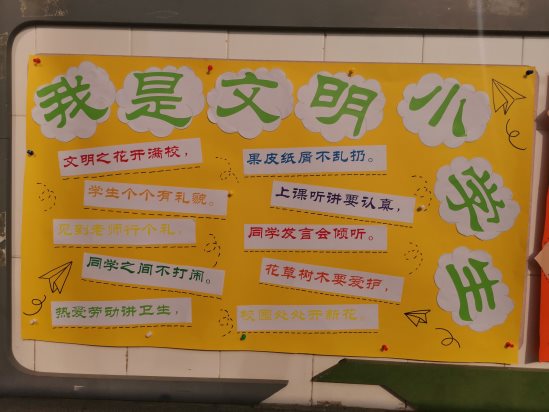 我是文明小学生
文明之花开满校，
学生个个有礼貌。
见到老师行个礼，
同学之间不打闹。
热爱劳动讲卫生，
果皮纸屑不乱扔。
上课听讲要认真，
同学发言会倾听。
花草树木要爱护，
校园处处开新花。